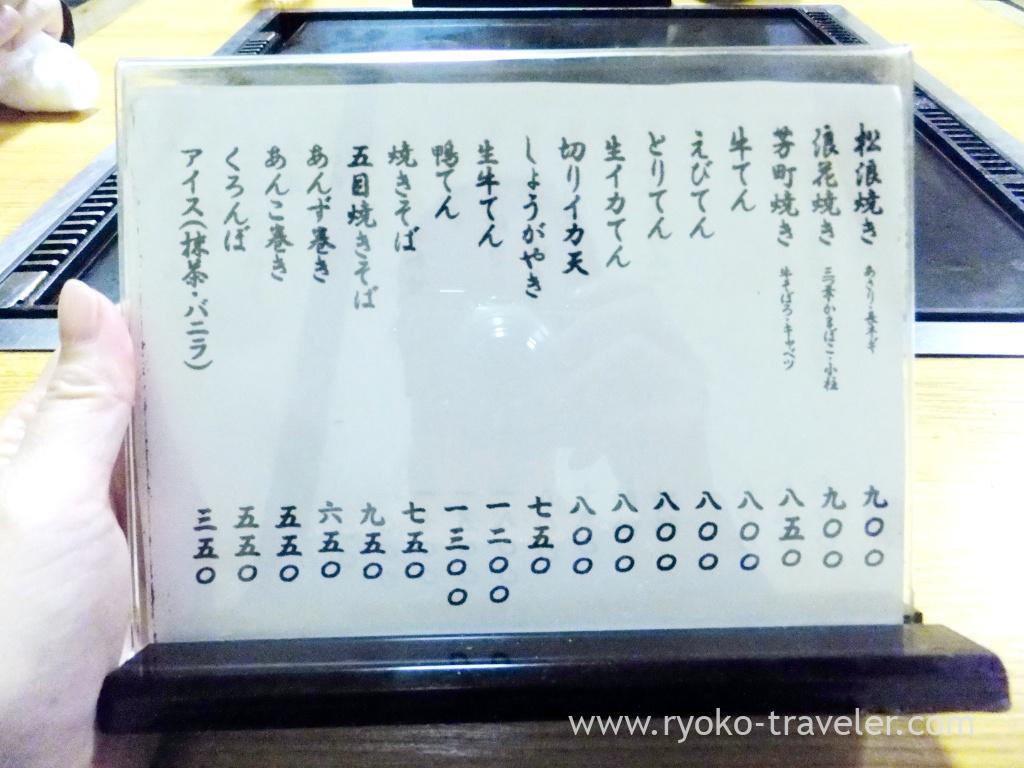 松浪焼き あさり・長ネギ 九〇〇
浪花焼き 三つ葉・かまぼこ・小柱 九〇〇
芳町焼き 牛そぼろ・キャベツ 八五〇
牛てん 八〇〇
えびてん 八〇〇
とりてん 八〇〇
生イカてん 八〇〇
切りイカ天 八〇〇
しょうがやき 七五〇
生牛てん 一二〇〇
鴨てん 一三〇〇
焼きそば 七五〇
五目焼きそば 九五〇
あんず巻き 六五〇
あんこ巻き 五五〇
くろんぼ 五五〇
アイス(抹茶・バニラ) 三五〇
www.ryoko-traveler.com